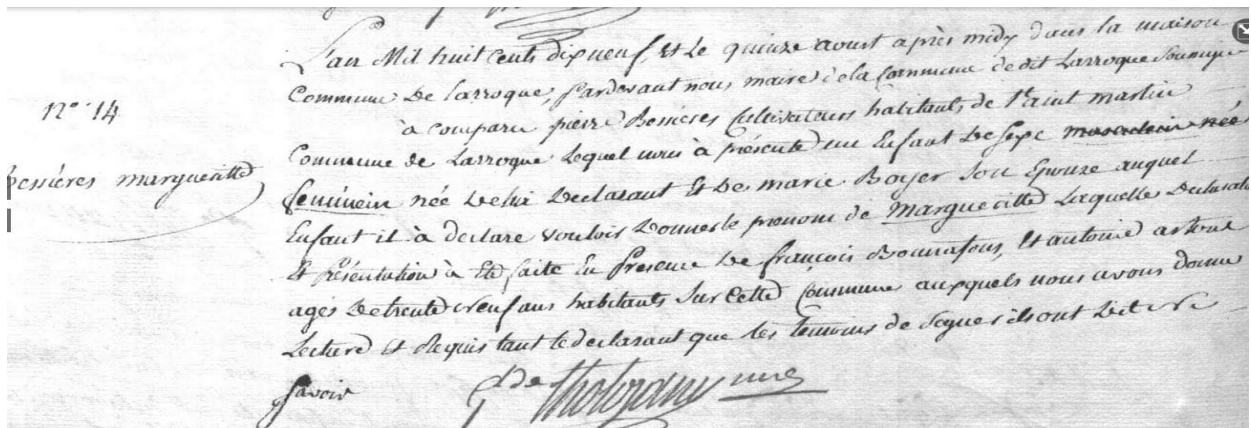 L'an Mil huit Cents dix neuf, Et Le quinze aoust après midy dans la maison
Commune De Larroque, pardevant nous maire dela Commune dedit Larroque Soussigné
n° 14
à comparu pierre Bessières Cultivateurs habitants de St aint martin
Commune de Larroque Lequel nous à présenté un Enfant De Sexe masculain née
Bessières margueritte
feminein née De lui Déclarant Et De marie Boyer Son Epouze auquel
Enfant il à declaré vouloir Donner le prenom de Margueritte Laquelle Declarat
Et Présentation à Eté faite En Presence De françois Bounafous, Et antoine
agés De trente neuf ans habitants Sur Cette Commune auxquels nous avons donné
Lecture Et Requis tant le declarant que les temoins de Signer ils ont Dit ne
Savoir
mre